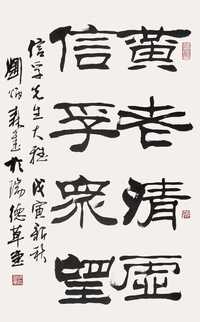 黄老清虚
信孚众望
信孚先生大雅 戊寅新秋
刘炳森书于瑞德草堂